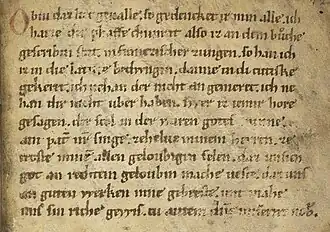 Ob iu daz liet geualle. so gedencket ir min alle. ich
haize der phaffe chunrat. also iz an dem bůche
gescribin stat. in franczischer zungen. so han ich
iz in die latine bedwngin. danne in di tutiske
gekeret. ich nehan der nicht an gemeret. ich ne
han dir nicht uberhaben. swer iz iemir hore
gesagen. der scol in der waren gotes minne
ain pat nr singe. ze helue minem herren. ze
troste allen geloubigen selen. daz unsich
got an rechtem geloubin mache ueste. daz uns
an guten werken niene gebreste. unt mache
uns sin riche gewis. tu autem dne miserere nob.